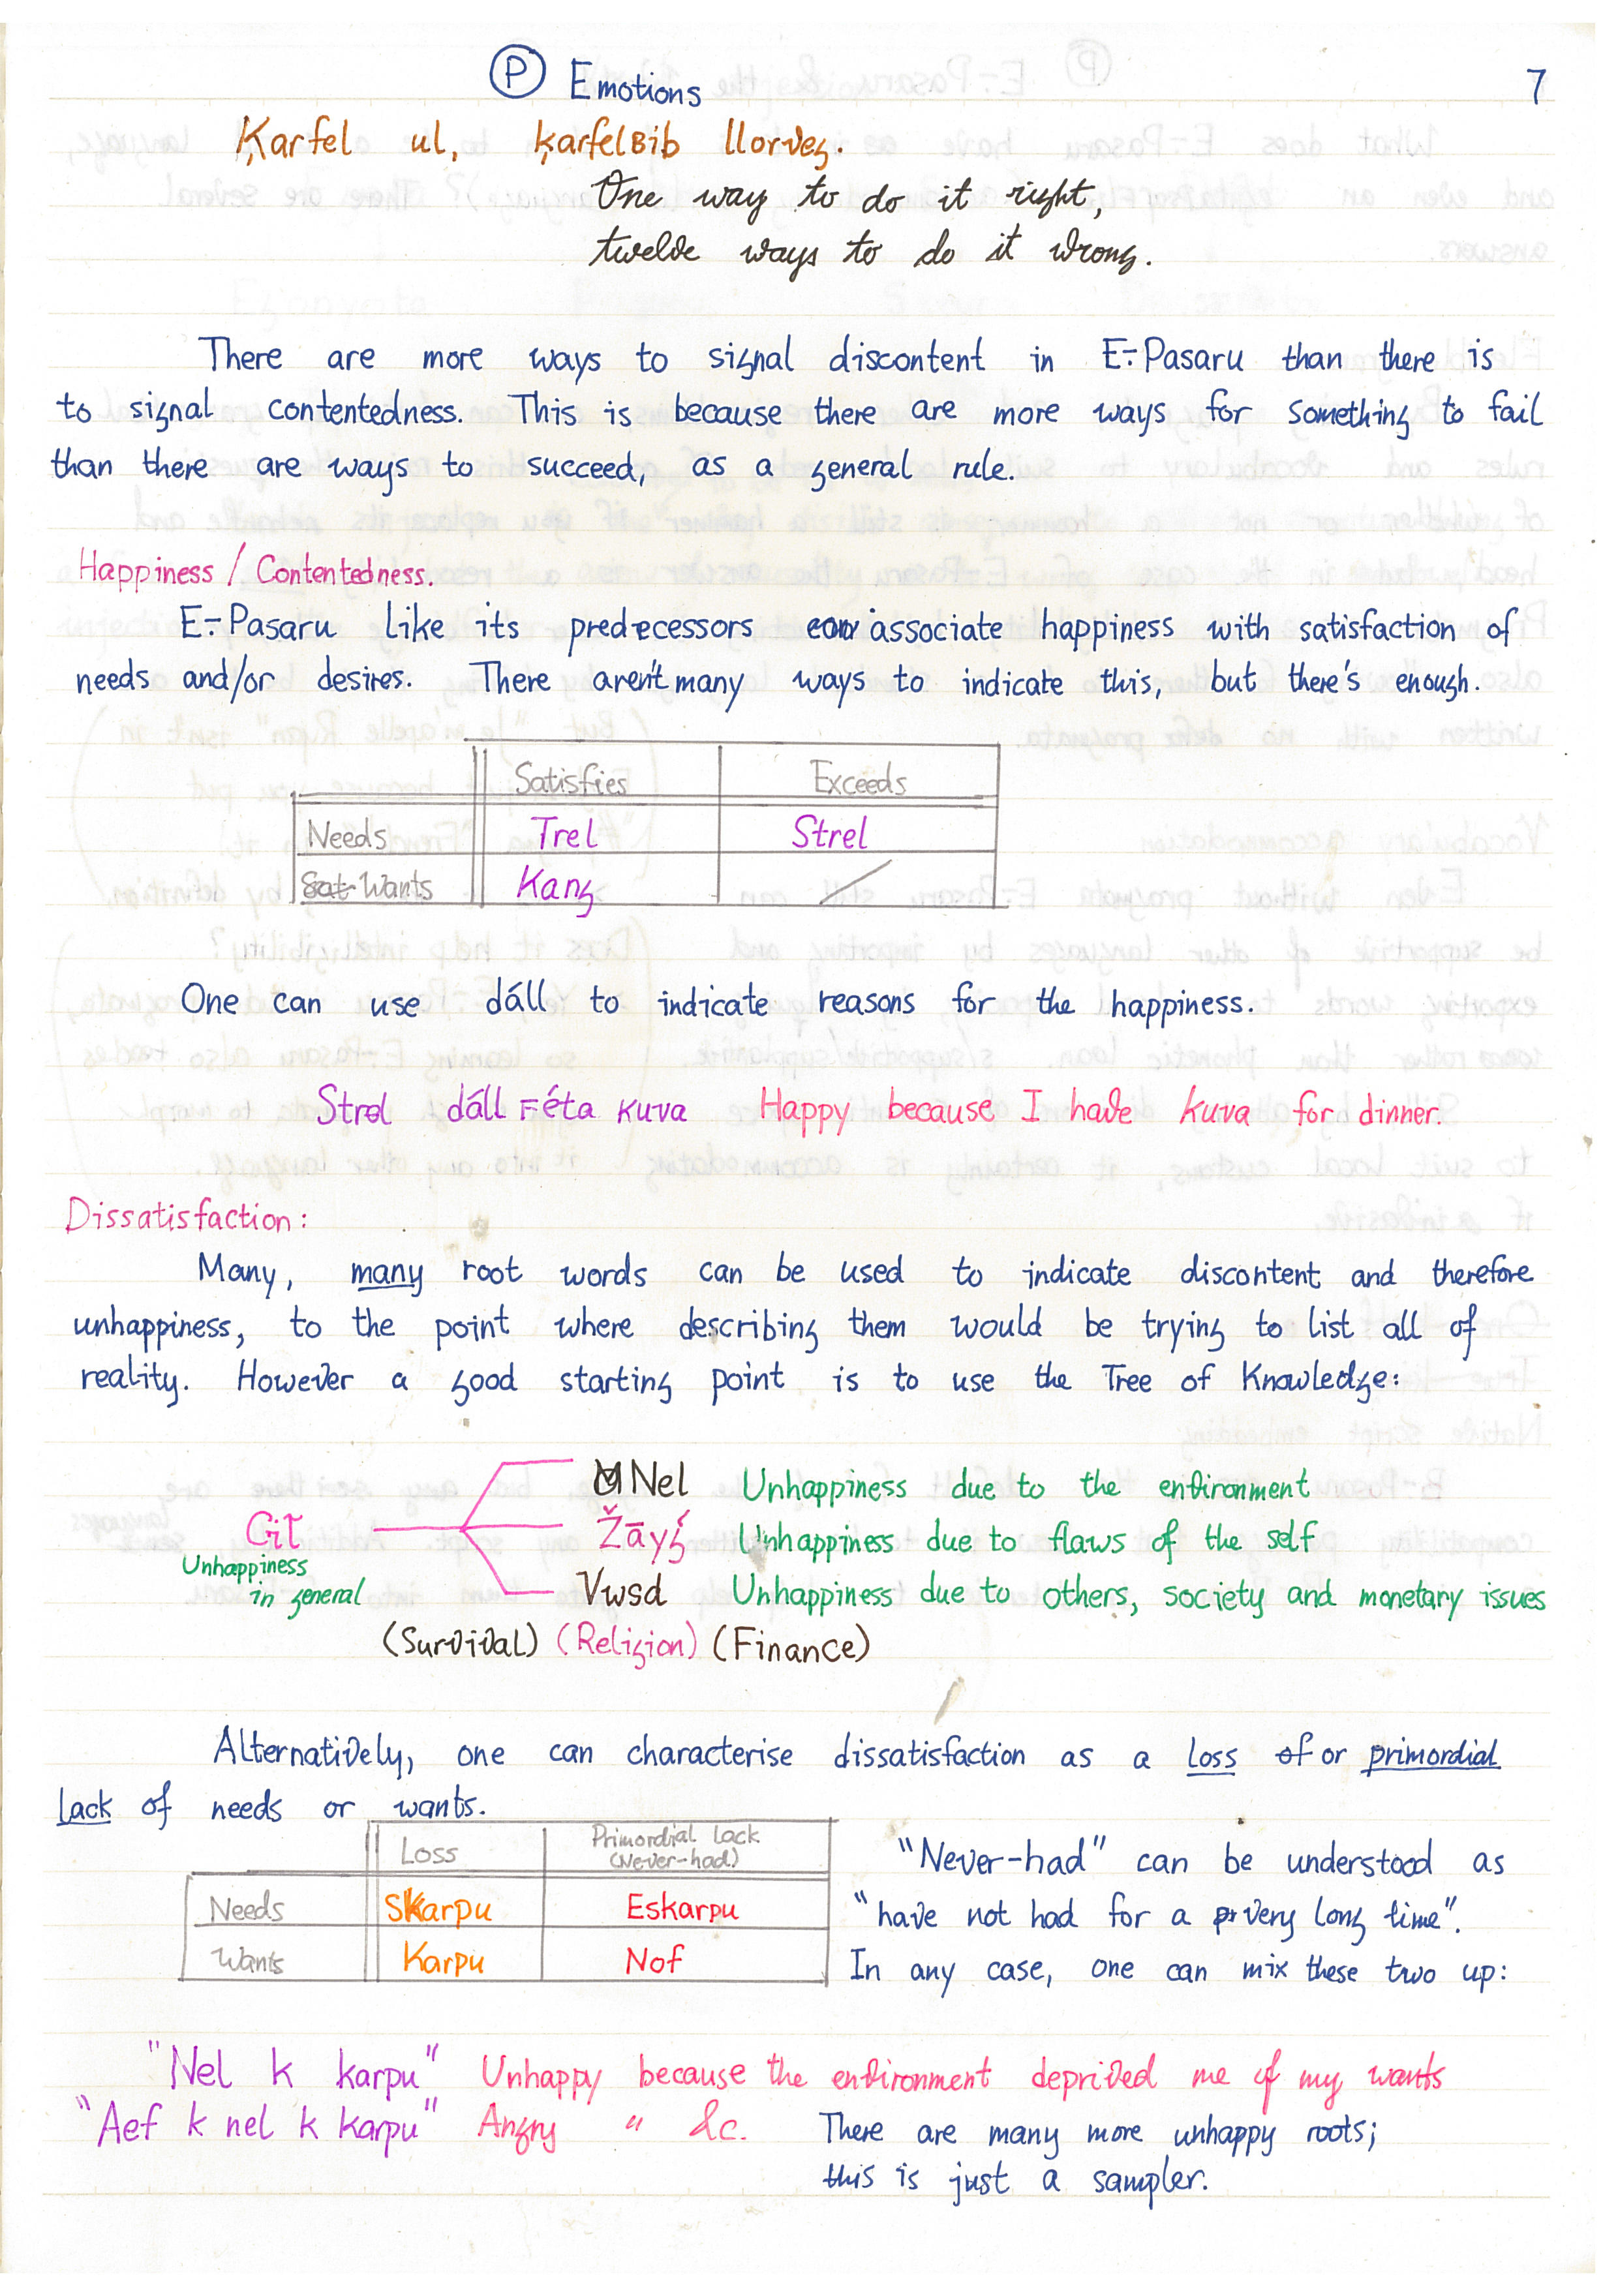 P Emotions 7
Ķarfel ul, ķarfelsib llorveg.
One way to do it right,
twelve ways to do it wrong.
There are more ways to signal discontent in E-Pasaru than there is
to signal contentedness. This is because there are more ways for something to fail
than there are ways to succeed, as a general rule.
Happiness / Contentedness.
E-Pasaru like its predecessors associate happiness with satisfaction of
needs and/or desires. There aren't many ways to indicate this, but there's enough.
Satisfies Exceeds
Needs Trel Strel
Wants Kang
One can use dáll to indicate reasons for the happiness.
Strel dáll Féta kuva Happy because I have kuva for dinner.
Dissatisfaction:
Many, many root words can be used to indicate discontent and therefore
unhappiness, to the point where describing them would be trying to list all of
reality. However a good starting point is to use the Tree of Knowledge:
Nel Unhappiness due to the environment
Unhappiness due to flaws of the self
Unhappiness
in general
Vwsd Unhappiness due to others, society and monetary issues
(Survival) (Religion) (Finance)
Alternatively, one can characterise dissatisfaction as a loss of or primordial
lack of needs or wants.
Loss Primordial lack
(Never-had)
Needs Skarpu Eskarpu
Wants Karpu Nof
"Never-had" can be understood as
"have not had for a very long time".
In any case, one can mix these two up:
"Nel k karpu" Unhappy because the environment deprived me of my wants
"Aef k nel k karpu" Angry " &c.
There are many more unhappy roots;
this is just a sampler.